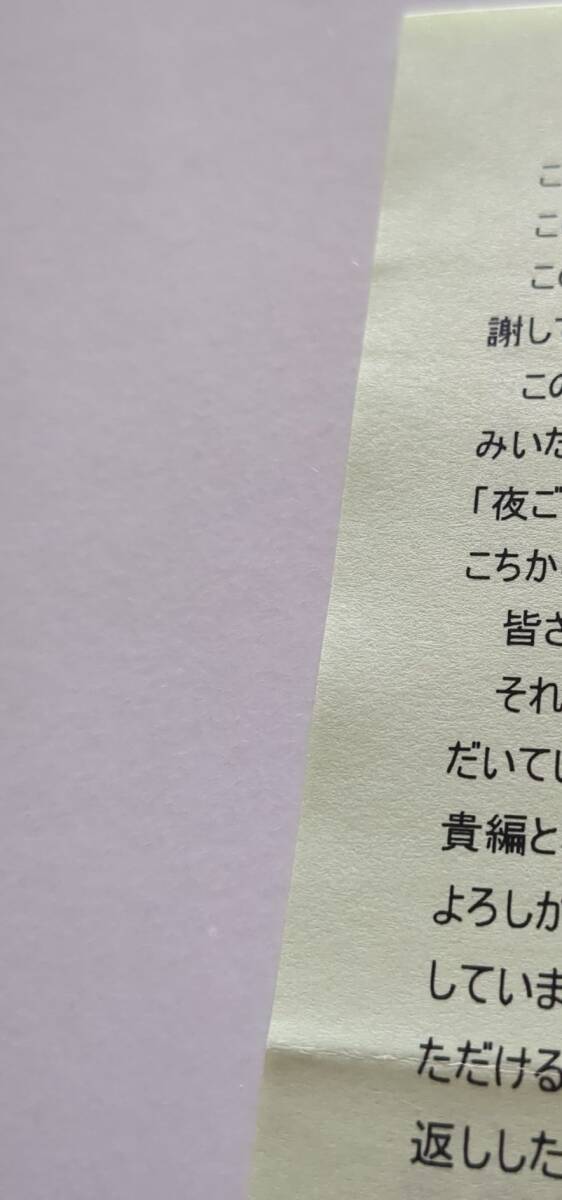 こ
こ
この
謝して
この
みいた
「夜ご
こちか
皆さ
それ
だいてし
貴編と
よろしか
していま
ただける
返しした